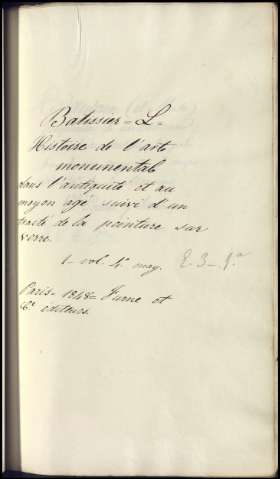 Batissier - L.
Histoire de l'art
monumental
dans l'antiquité et au
moyen agé suivi d'un
traité de la peinture sur
verre.
1 - vol. 4º may. E-3-9ª
Paris - 1845 - Furne et
Cº editeurs.